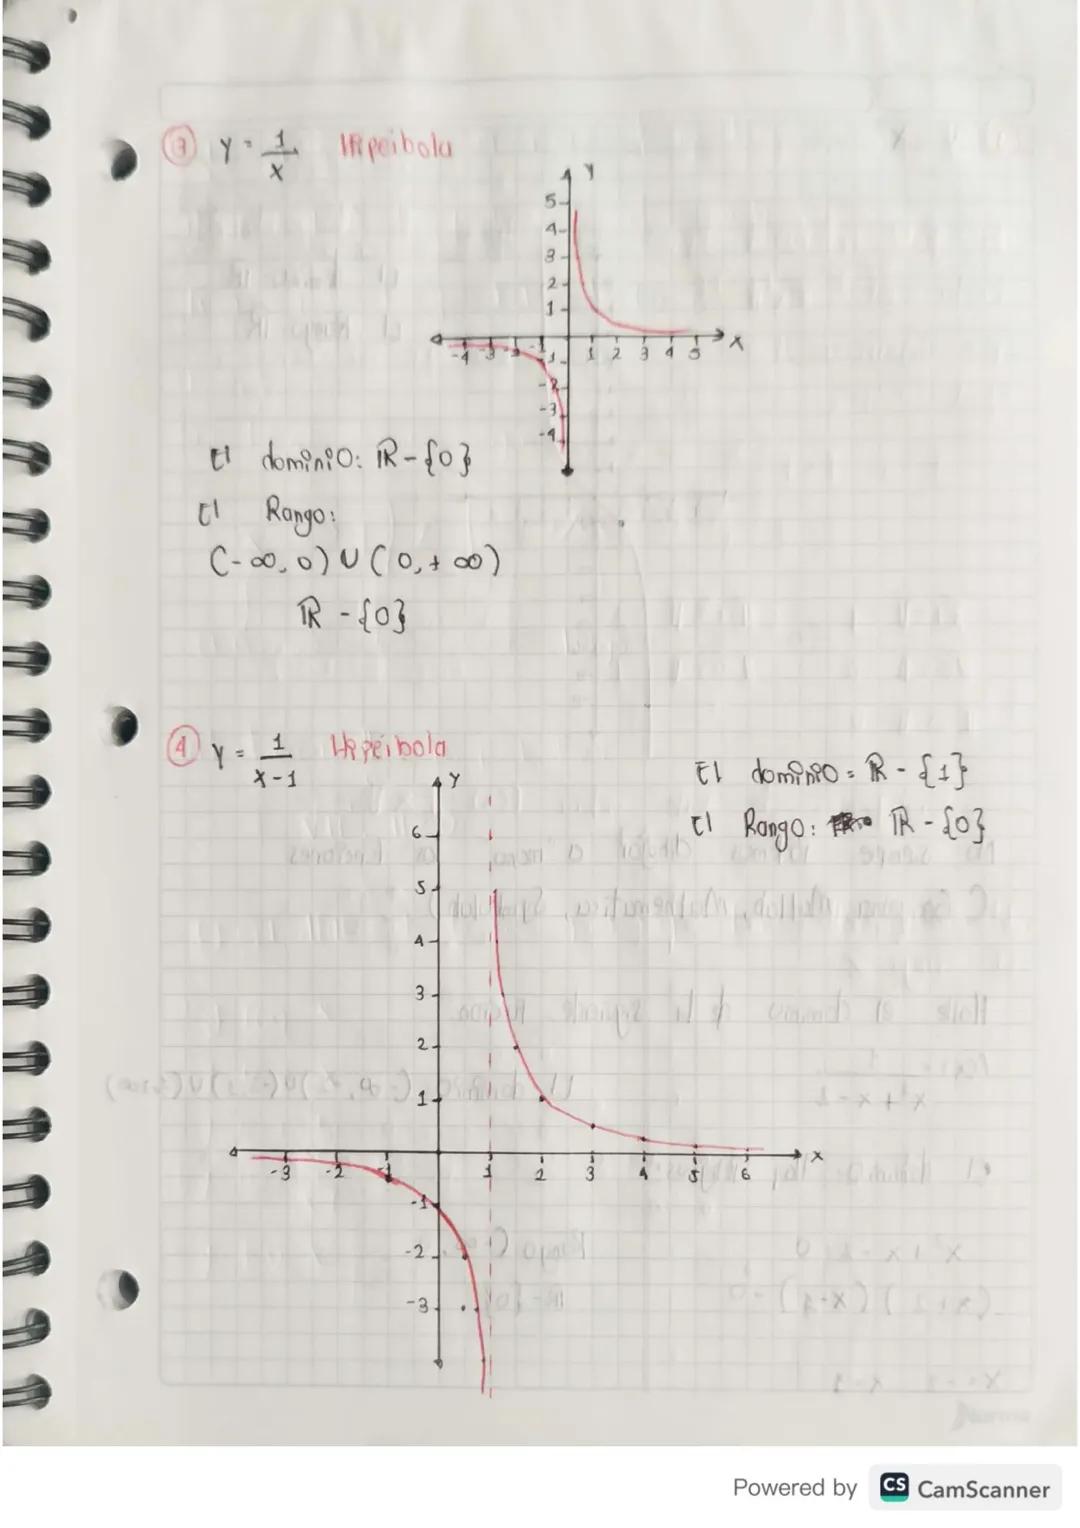 ③ y = 1/x Hipeibola
Y
5
4
3
2
1
-4 -3 -2 -1 1 2 3 4 5 X
-1
-2
-3
-4
El dominio: ℝ - {0}
El Rango:
(-∞, 0) ∪ (0, + ∞)
ℝ - {0}
④ y = 1/x-1 Hipeibola
El dominio = ℝ - {1}
El Rango: ℝ - {0}
Y
6
5
4
3
2
1
-3 -2 -1 1 2 3 4 5 6 X
-1
-2
-3
Powered by CS CamScanner